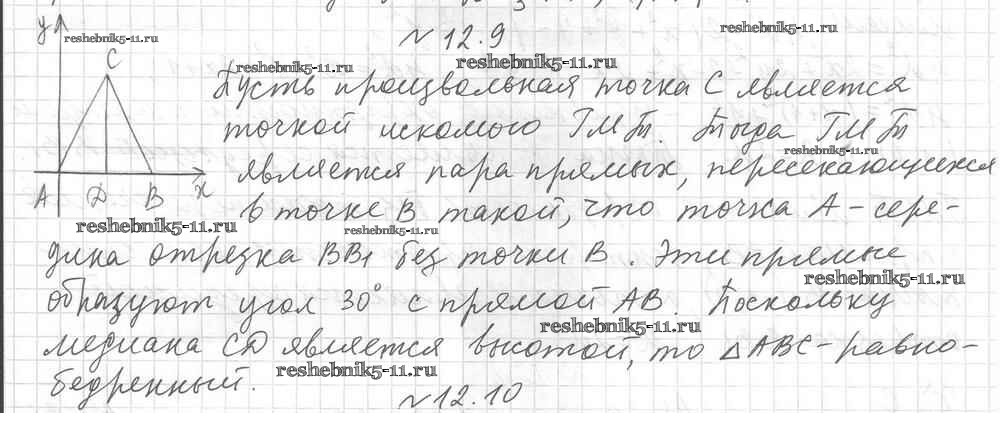 y
reshebnik5-11.ru
C
A D B x
№ 12.9
reshebnik5-11.ru
reshebnik5-11.ru
reshebnik5-11.ru
Пусть произвольная точка C является
точкой искомого ГМТ. Тогда ГМТ
reshebnik5-11.ru
является пара прямых, пересекающихся
в точке B такой, что точка A - сере-
reshebnik5-11.ru
reshebnik5-11.ru
дина отрезка BB₁ без точки B. Эти прямые
reshebnik5-11.ru
образуют угол 30° с прямой AB. Поскольку
reshebnik5-11.ru
медиана CD является высотой, то △ABC - равно-
reshebnik5-11.ru
бедренный.
№ 12.10